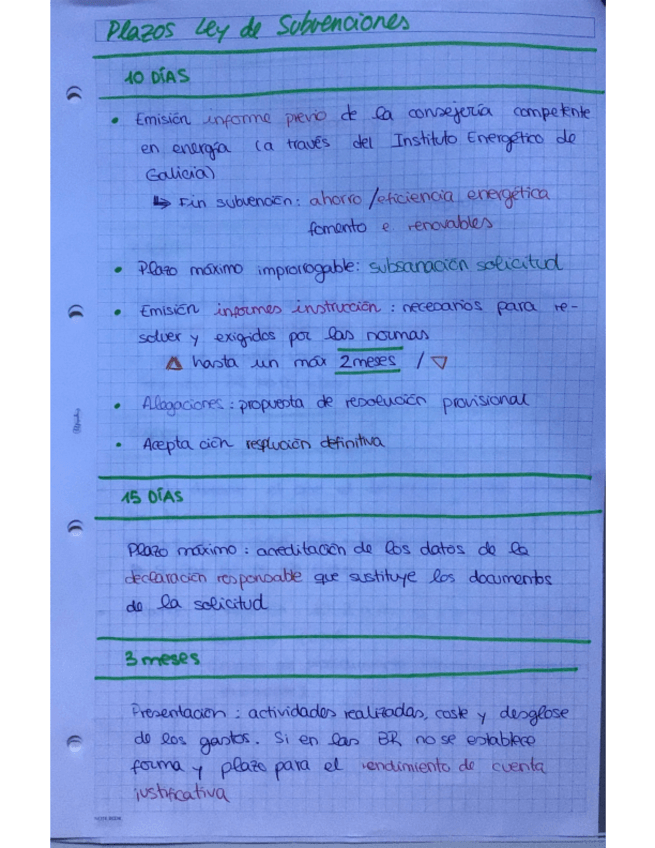 Plazos Ley de Subvenciones
10 DÍAS
• Emisión informe previo de la consejería competente
en energía (a través del Instituto Energético de
Galicia)
↳ Fin subvención: ahorro / eficiencia energética
fomento e renovables
• Plazo máximo improrrogable: subsanación solicitud
• Emisión informes instrucción: necesarios para re-
solver y exigidos por las normas
△ hasta un máx 2 meses / ▽
• Alegaciones: propuesta de resolución provisional
• Aceptación resolución definitiva
15 DÍAS
Plazo máximo: acreditación de los datos de la
declaración responsable que sustituye los documentos
de la solicitud
3 meses
Presentación: actividades realizadas, coste y desglose
de los gastos. Si en las BR no se establece
forma y plazo para el rendimiento de cuenta
justificativa